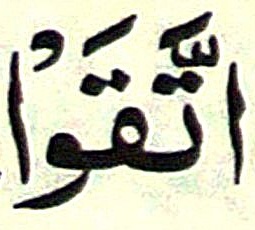 اتَّقَوْا